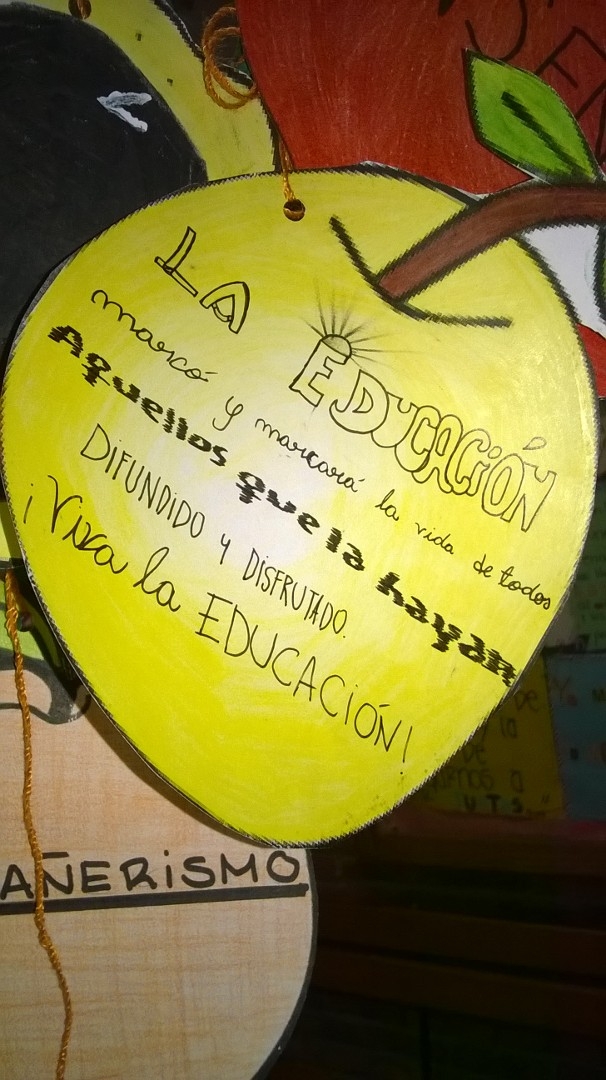 LA EDUCACIÓN
marcó y marcará la vida de todos
Aquellos que la hayan
DIFUNDIDO Y DISFRUTADO.
¡Viva la EDUCACIÓN!
AÑERISMO